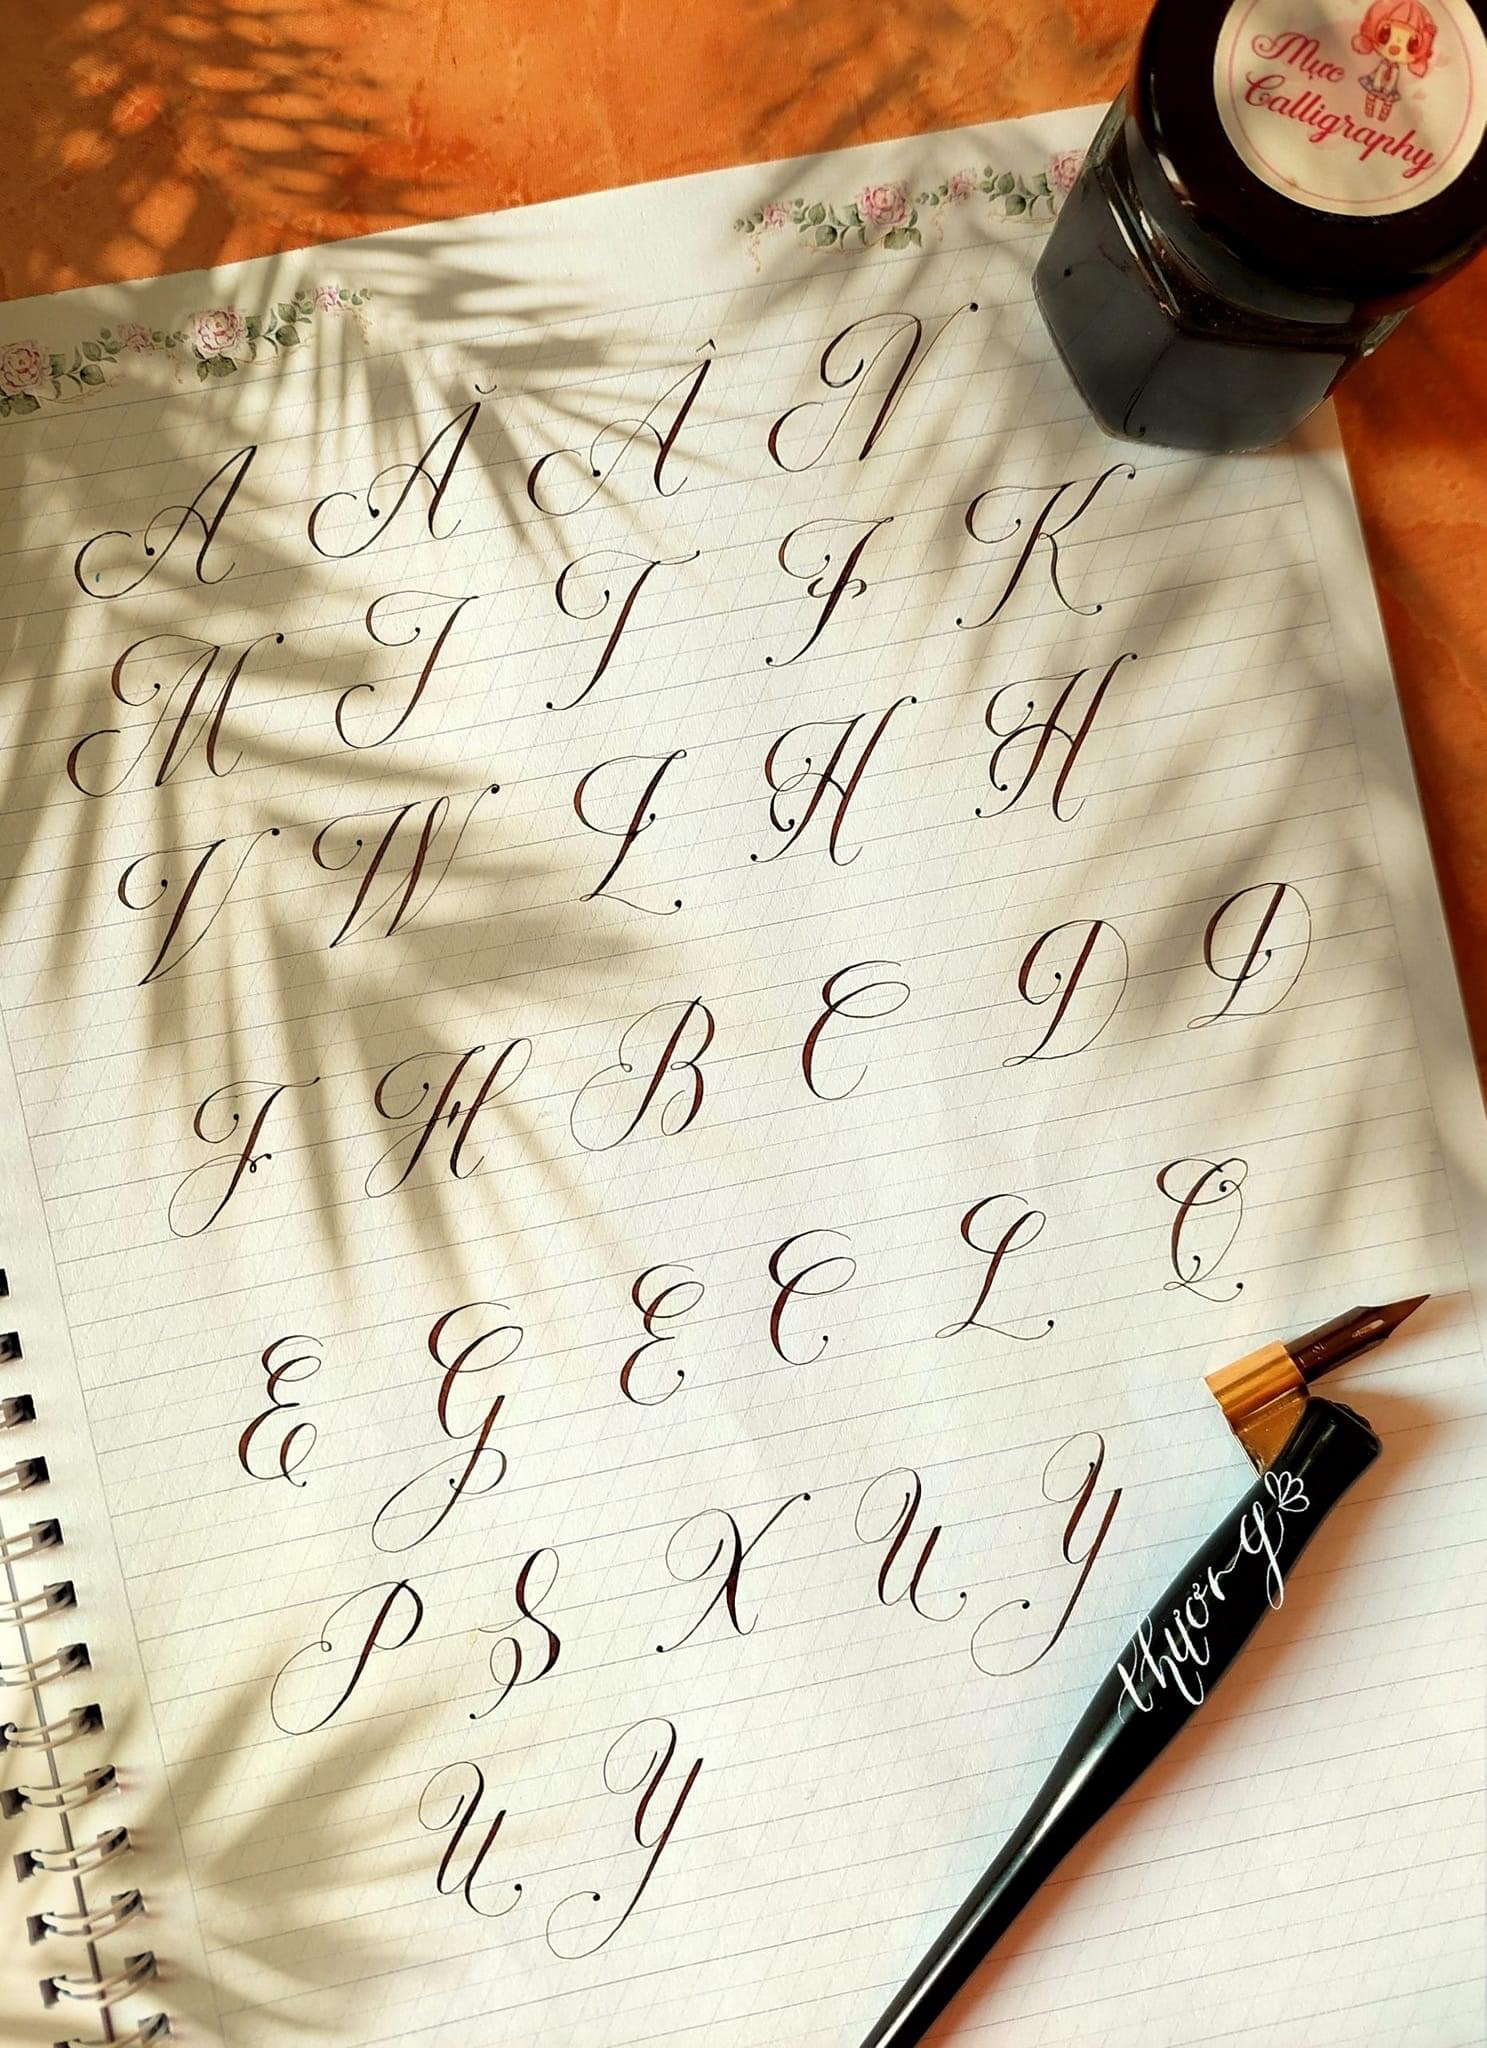 Mực
Calligraphy
A Ă Â N
M I T F K
V W L H H
F H B C D D
E G E C L Q
P S X U Y
U Y
thương